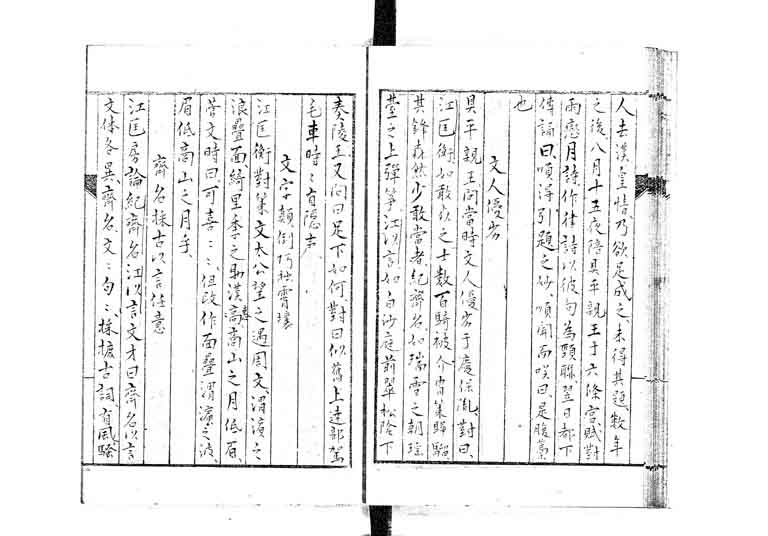 人去漢皇情乃欲足成之未得其題數年
之後八月十五夜陪具平親王于六條宮賦對
雨戀月詩作律詩以彼句為頸聯翌日都下
傳誦曰頃得引題之妙順聞而咲曰是腹藁
也
文人優劣
具平親王問當時文人優劣于慶保胤對曰
江匡衡如敢死之士數百騎被介冑策驊騮
其鋒森然少敢當者紀齊名如瑞雪之朝瑤
臺之上彈箏江以言如白沙庭前翠松陰下
奏陵王又問曰足下如何對曰似舊上達部駕
毛車時々有隱聲
文字顛倒巧拙霄壤
江匡衡對策文太公望之遇周文渭濱之
浪疊面綺里季之助漢惠高嵩山之月低眉
菅文時曰可喜々々但改作面疊渭濱之波
眉低嵩山之月乎
齊名採古以言任意
江匡房論紀齊名江以言文才曰齊名以言
文体各異齊名文々句々採摭古詞有風騷